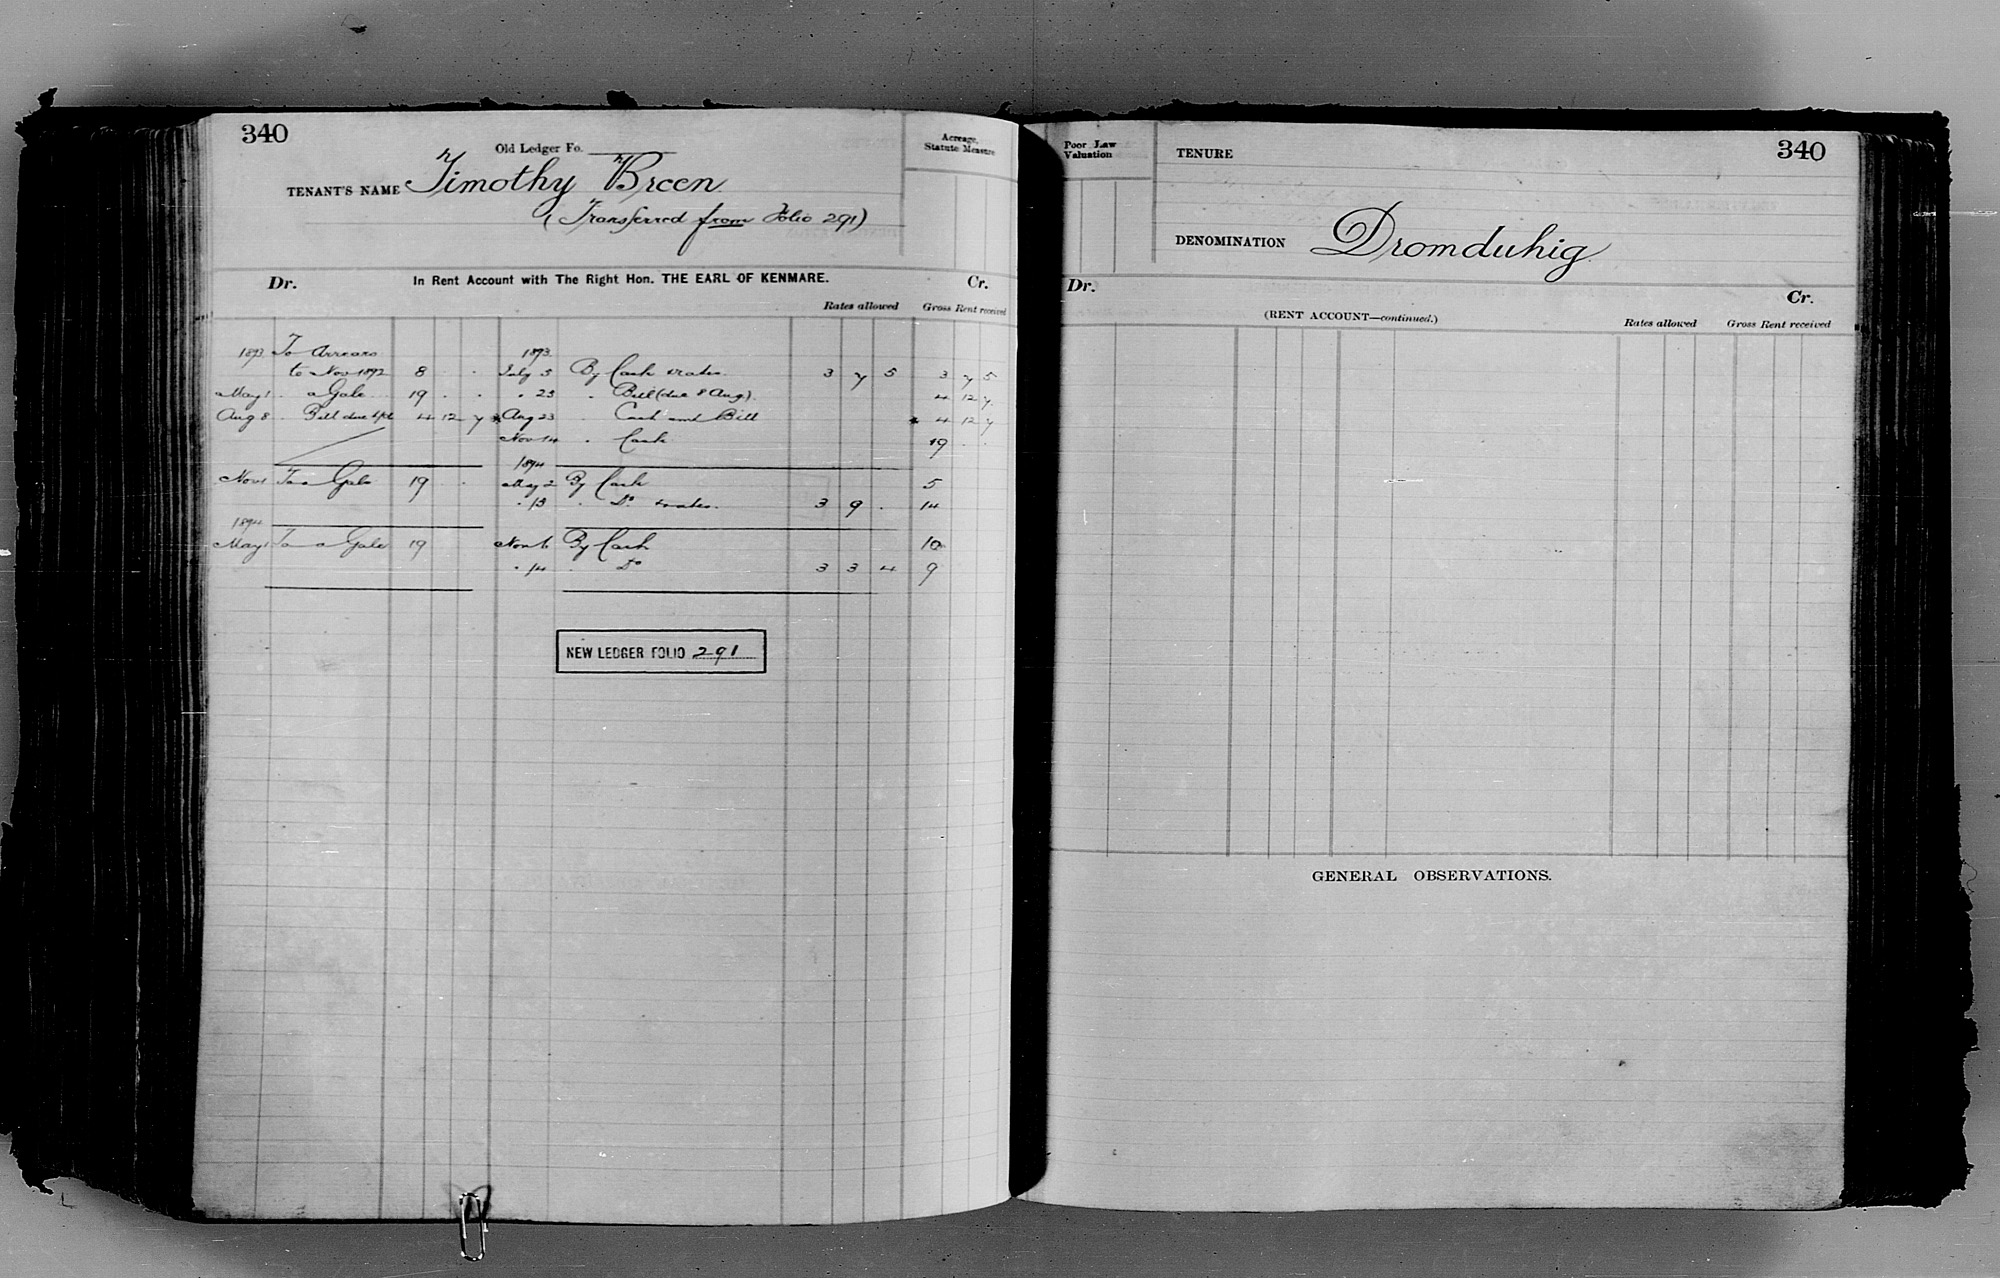 340
Old Ledger Fo.
Acreage, Statute Measure
TENANT'S NAME Timothy Breen
(Transferred from Folio 291)
Dr. In Rent Account with The Right Hon. THE EARL OF KENMARE. Cr.
Rates allowed Gross Rent received
1893 To Arrears 1893
to Nov 1892 8 . . July 3 By Cash & rates 3 7 5 3 7 5
May 1 . a Gale 19 . . " 23 " Bill (due 8 Aug) 4 12 7
Aug 8 . Bill due 4 12 7 Aug 23 " Cash and Bill 4 12 7
Nov 14 " Cash 19 . .
1894
Nov 1 To a Gale 19 . May 2 By Cash 5
" 13 " Do & rates. 3 9 . 14
1894
May 1 To a Gale 19 Nov 6 By Cash 10
" 14 " Do 3 3 4 9
NEW LEDGER FOLIO 291
Poor Law Valuation
TENURE
340
DENOMINATION Dromduhig
Dr. Cr.
(RENT ACCOUNT—continued.)
Rates allowed Gross Rent received
GENERAL OBSERVATIONS.